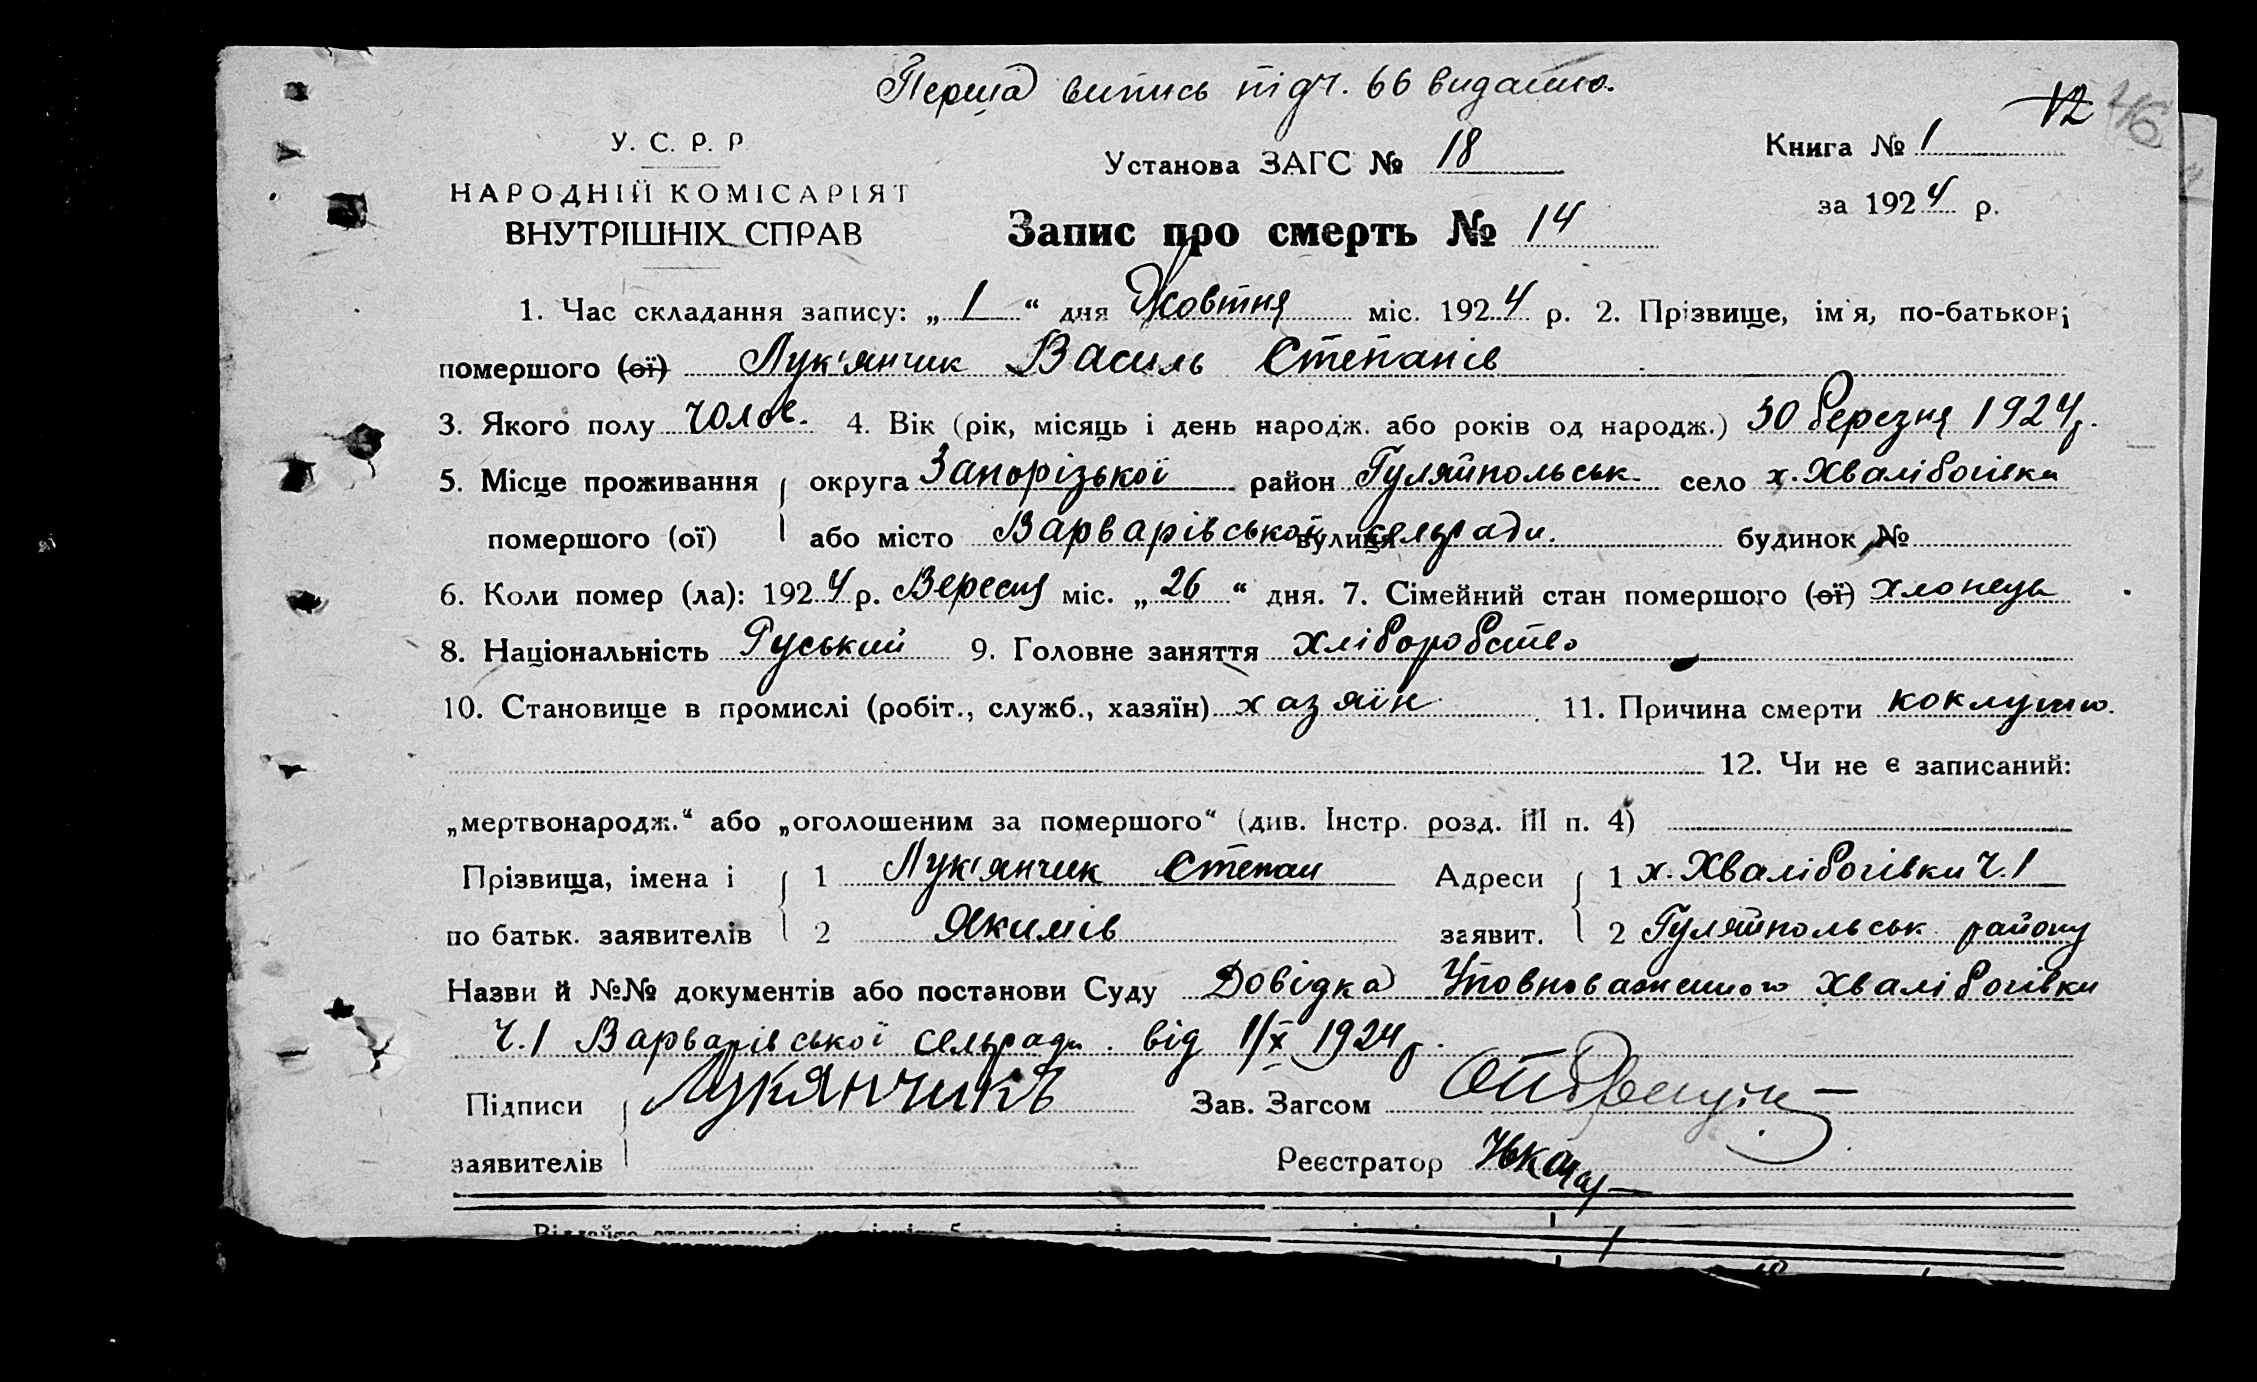 Перша випись під ч. 66 видана.
12 46
У. С. Р. Р
Установа ЗАГС № 18
Книга № 1
НАРОДНІЙ КОМІСАРІЯТ
за 1924 р.
ВНУТРІШНІХ СПРАВ
Запис про смерть № 14
1. Час складання запису: „1“ дня Жовтня міс. 1924 р. 2. Прізвище, ім'я, по-батькові
помершого (ої) Лук'янчик Василь Степанів
3. Якого полу Чолов. 4. Вік (рік, місяць і день народж. або років од народж.) 30 березня 1924 р.
5. Місце проживання округа Запорізької район Гуляйпольськ. село х. Хвалібогівка
помершого (ої) або місто Варварівської вулиця сельради. будинок №
6. Коли помер (ла): 1924 р. Вересня міс. „26“ дня. 7. Сімейний стан помершого (ої) хлопець
8. Національність Руський 9. Головне заняття хліборобство
10. Становище в промислі (робіт., служб., хазяїн) хазяїн 11. Причина смерти коклушю.
12. Чи не є записаний:
„мертвонародж.“ або „оголошеним за помершого“ (див. Інстр. розд. III п. 4)
Прізвища, імена і 1 Лук'янчик Степан Адреси 1 х. Хвалібогівки Ч. 1
по батьк. заявителів 2 Якимів заявит. 2 Гуляйпольськ району
Назви й №№ документів або постанови Суду Довідка Уповноваженного Хвалібогівки
Ч. 1 Варварівської сельради. від 1/X 1924 р.
Підписи Лукянчикъ Зав. Загсом
заявителів Реєстратор